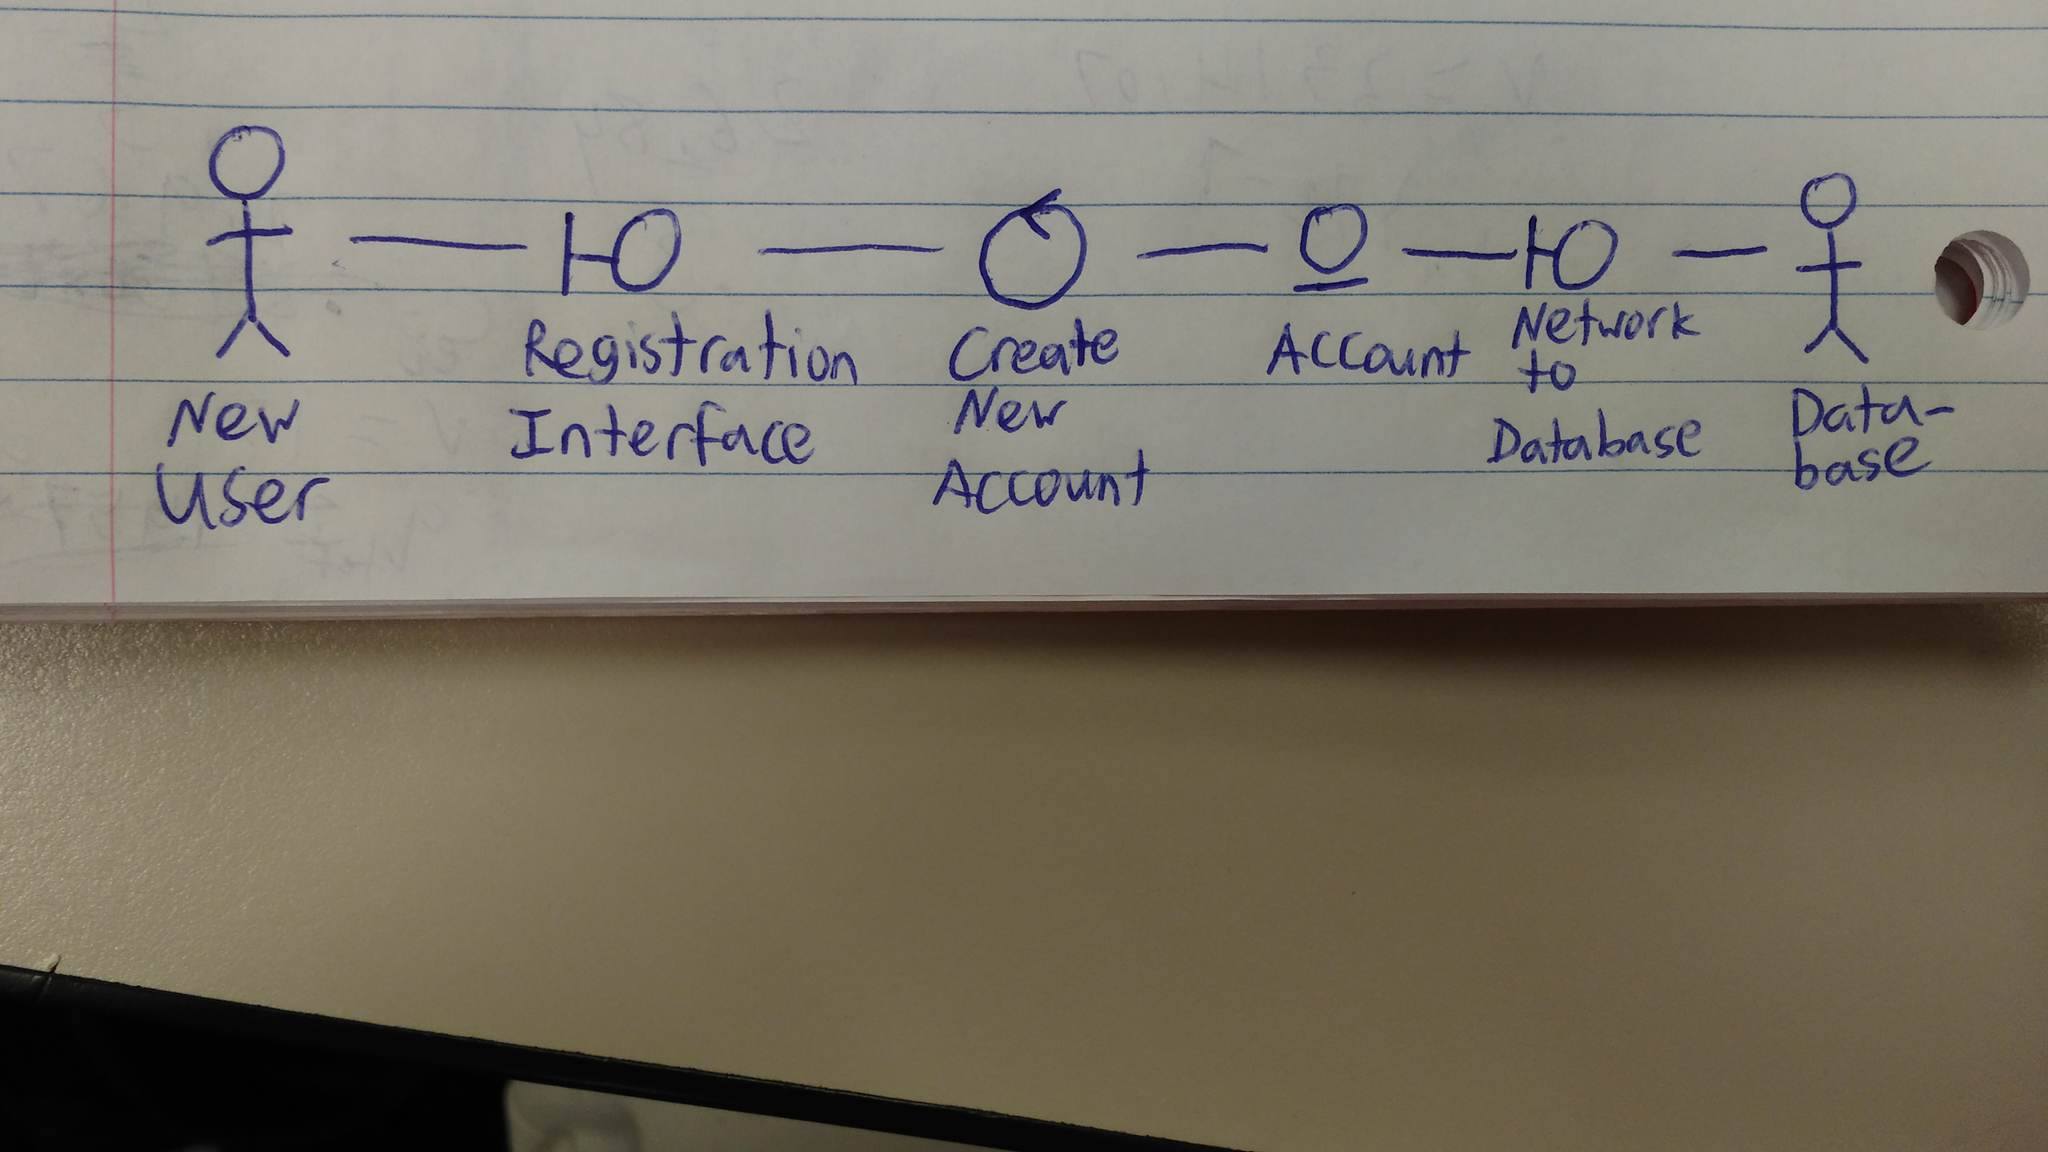 New
User
Registration
Interface
Create
New
Account
Account
Network
to
Database
Data-
base